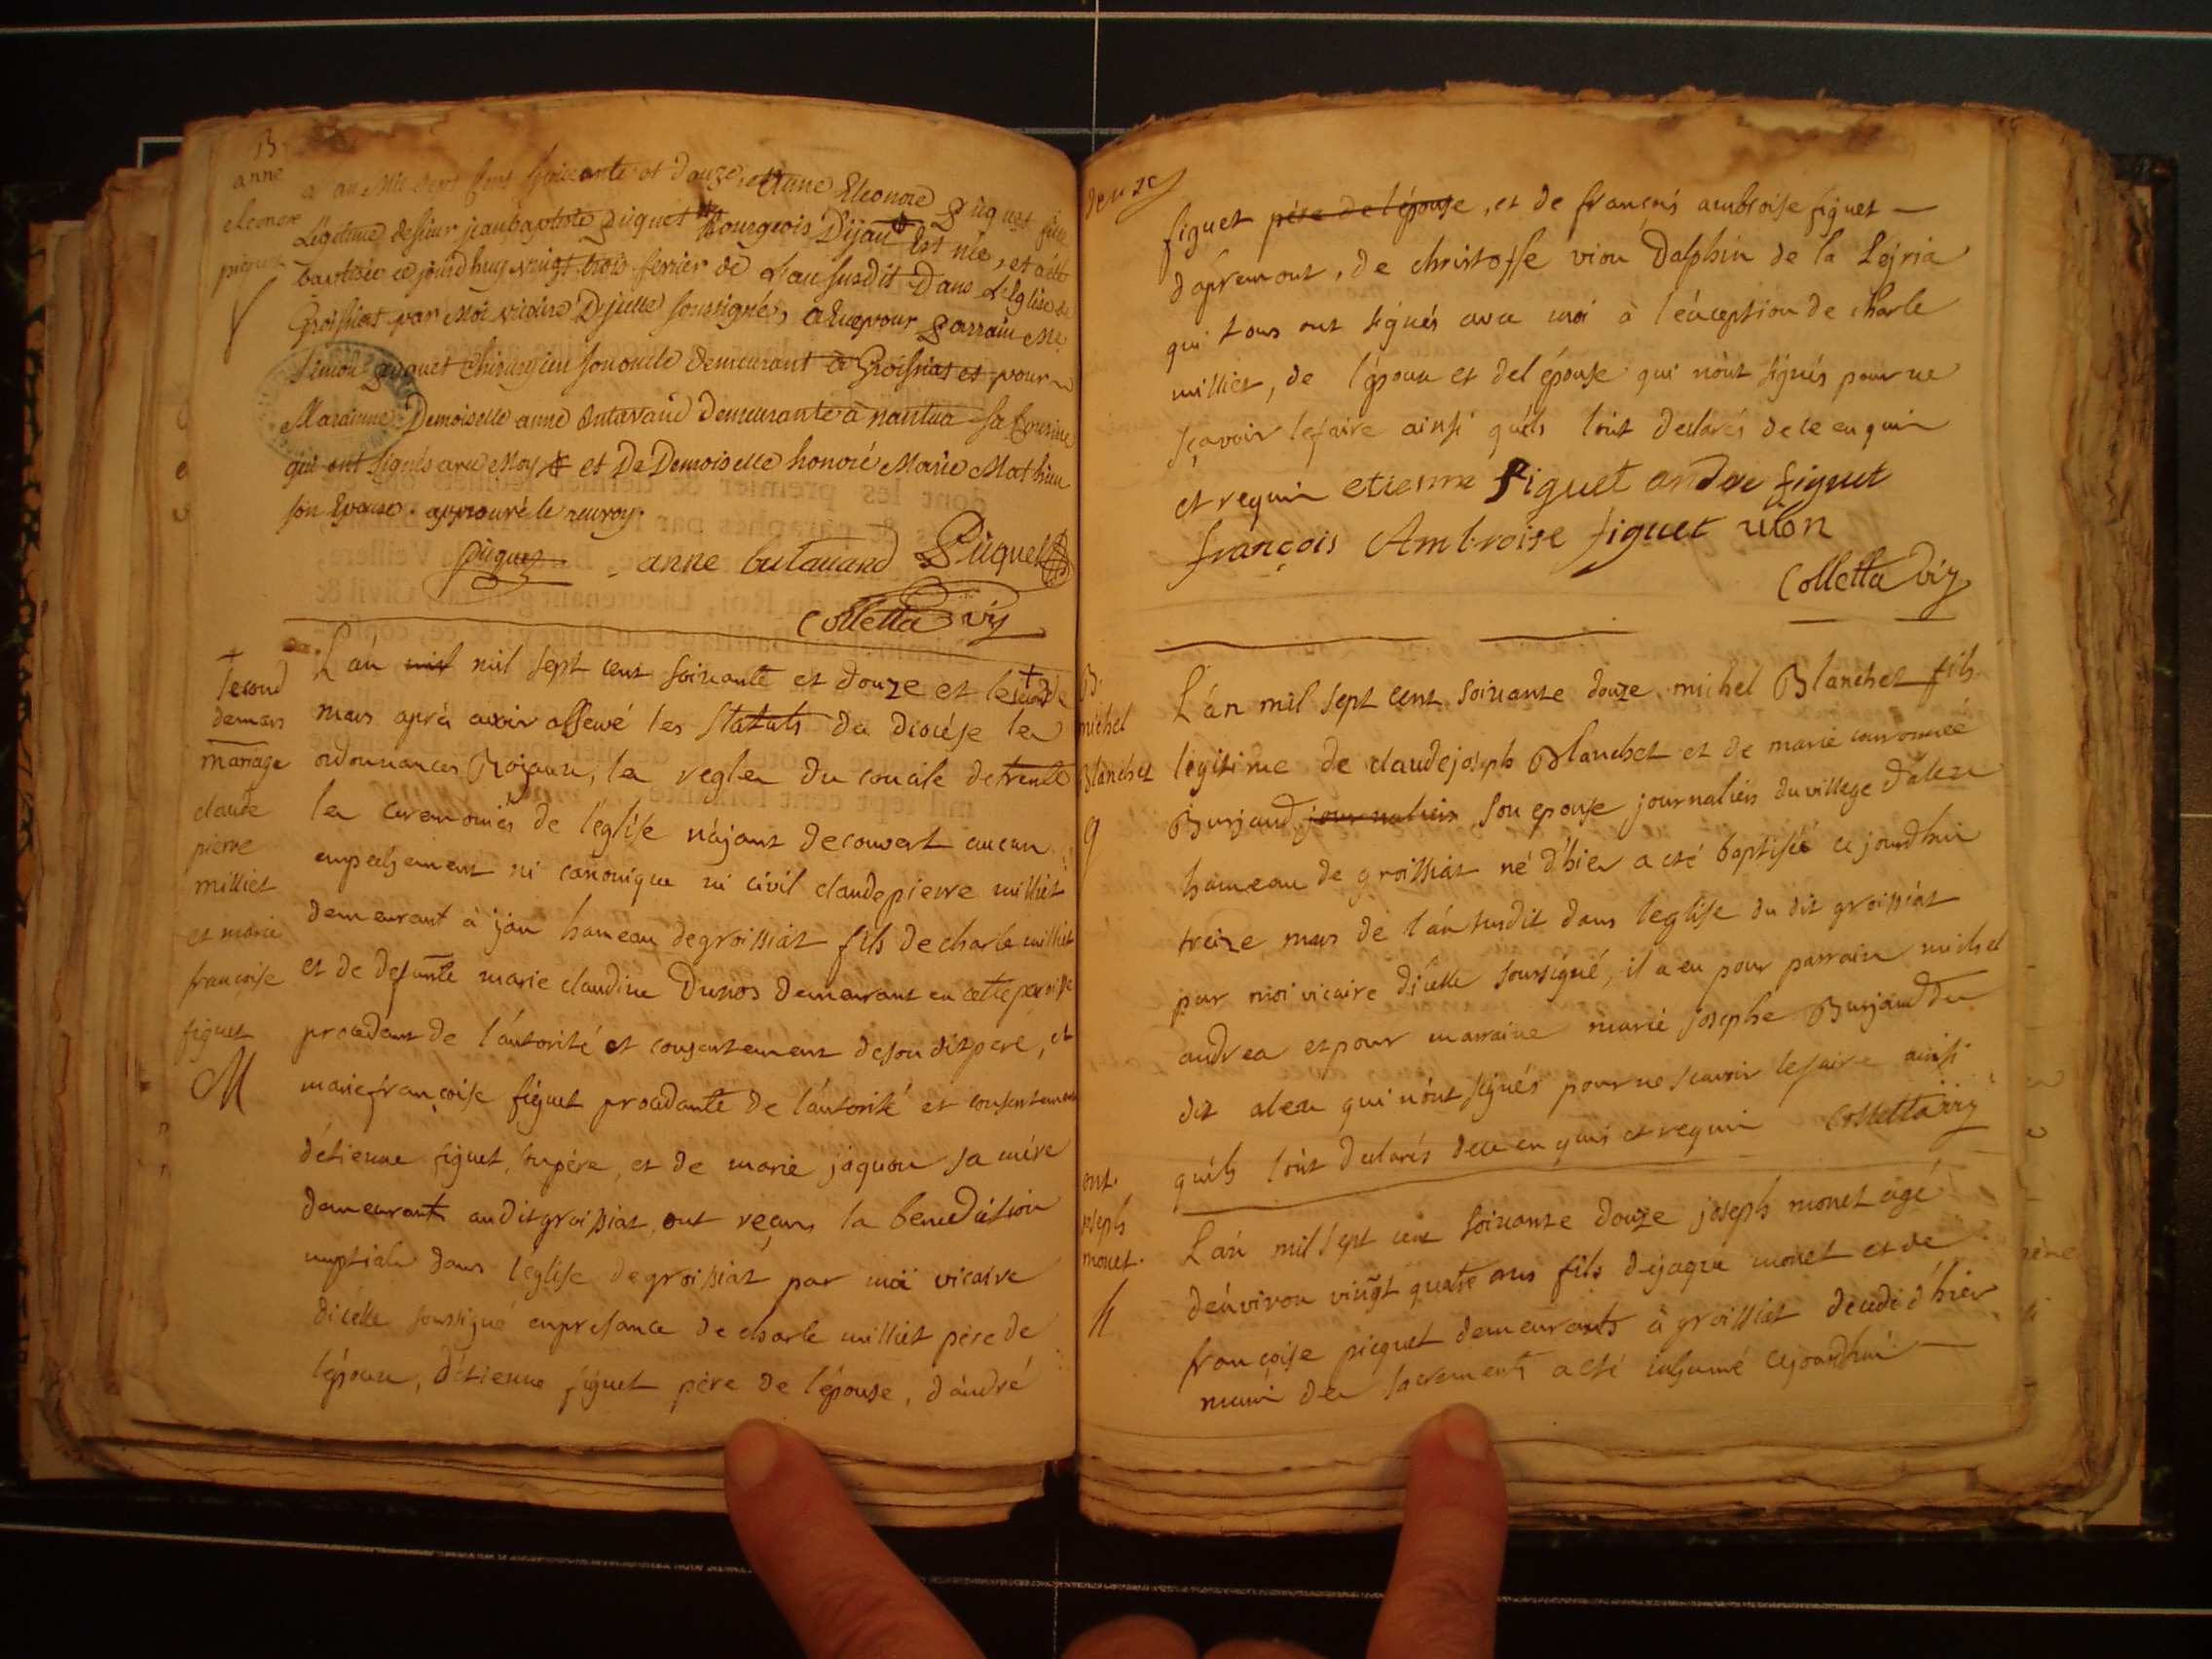 B.
anne
eleonore
piquet
L'an Mil sept cent soixante et douze, Anne Eleonore Piquet fille
Légitime de sieur jean baptiste piquet Bourgeois D'ijan Est née, et a été
baptisée ce jourd'huy vingt trois fevrier de L'an susdit Dans L'Eglise de
Groissiat par Moi vicaire D'icelle soussigné, a Eu pour Parrain Me
Simon piquet Chirurgien son oncle demeurant à Groissiat et pour
Maraine Demoiselle anne butavand Demeurante à nantua sa Cousine
qui ont signés avec Moy et De Demoiselle honoré Marie Mathieu
son Epouse. approuvé le renvoy.
piquet anne butavand Piquet
Colletta vic
second
de mars
mariage
claude
pierre
milliet
et marie
francoise
figuet
M
L'an mil mil sept cent soixante et douze et le second de
mars après avoir observé les statuts du diocése les
ordonnances Roïaux, les regles du concile de trente
les ceremonies de l'église n'ajant decouvert aucun
empechement ni canonique ni civil claude pierre milliet
demeurant à ijan hameau de groissiat fils de charle milliet
et de defunte marie claudine Dunos demeurant en cette paroisse
procedant de l'autorité et consentement de son dit pere, et
marie françoise figuet procedante de l'autorité et consentement
d'étienne figuet, son père, et de marie jaquon sa mére
demeurants au dit groissiat ont reçus la benediction
nuptiale dans l'église de groissiat par moi vicaire
d'icelle soussigné en presance de charle milliet père de
l'époux, d'étienne figuet père de l'épouse, d'andré
douze
figuet père de l'épouse, et de françois ambroise figuet
d'apremont, de christoffle vion Dalphin de la Lejria
qui tous ont signés avec moi à l'exception de charle
milliet, de l'époux et de l'épouse qui n'ont signés pour ne
sçavoir le faire ainsi qu'ils l'ont declarés de ce enquis
et requis etienne figuet andre figuet
françois Ambroise figuet vion
Colletta vic
B.
michel
Blanchet
9
L'an mil sept cent soixante douze michel Blanchet fils
legitime de claude joseph Blanchet et de marie couronnée
Burjaud journaliers son epouse journaliers du village d'alex
hameau de groissiat né d'hier a eté baptisé ce jourd'hui
treize mars de l'an susdit dans l'eglise du dit groissiat
par moi vicaire d'icelle soussigné, il a eu pour parrain michel
andrea et pour marraine marie josephe Burjaud du
dit alex qui n'ont signés pour ne scavoir le faire ainsi
qu'ils l'ont declarés de ce enquis et requis Colletta vic
ent.
joseph
monet.
L'an mil sept cent soixante douze joseph monet agé
d'environ vingt quatre ans fils de jaque monet et de
françoise piequet demeurants à groissiat decedé d'hier
muni des sacrements a eté inhumé ce jourd'hui